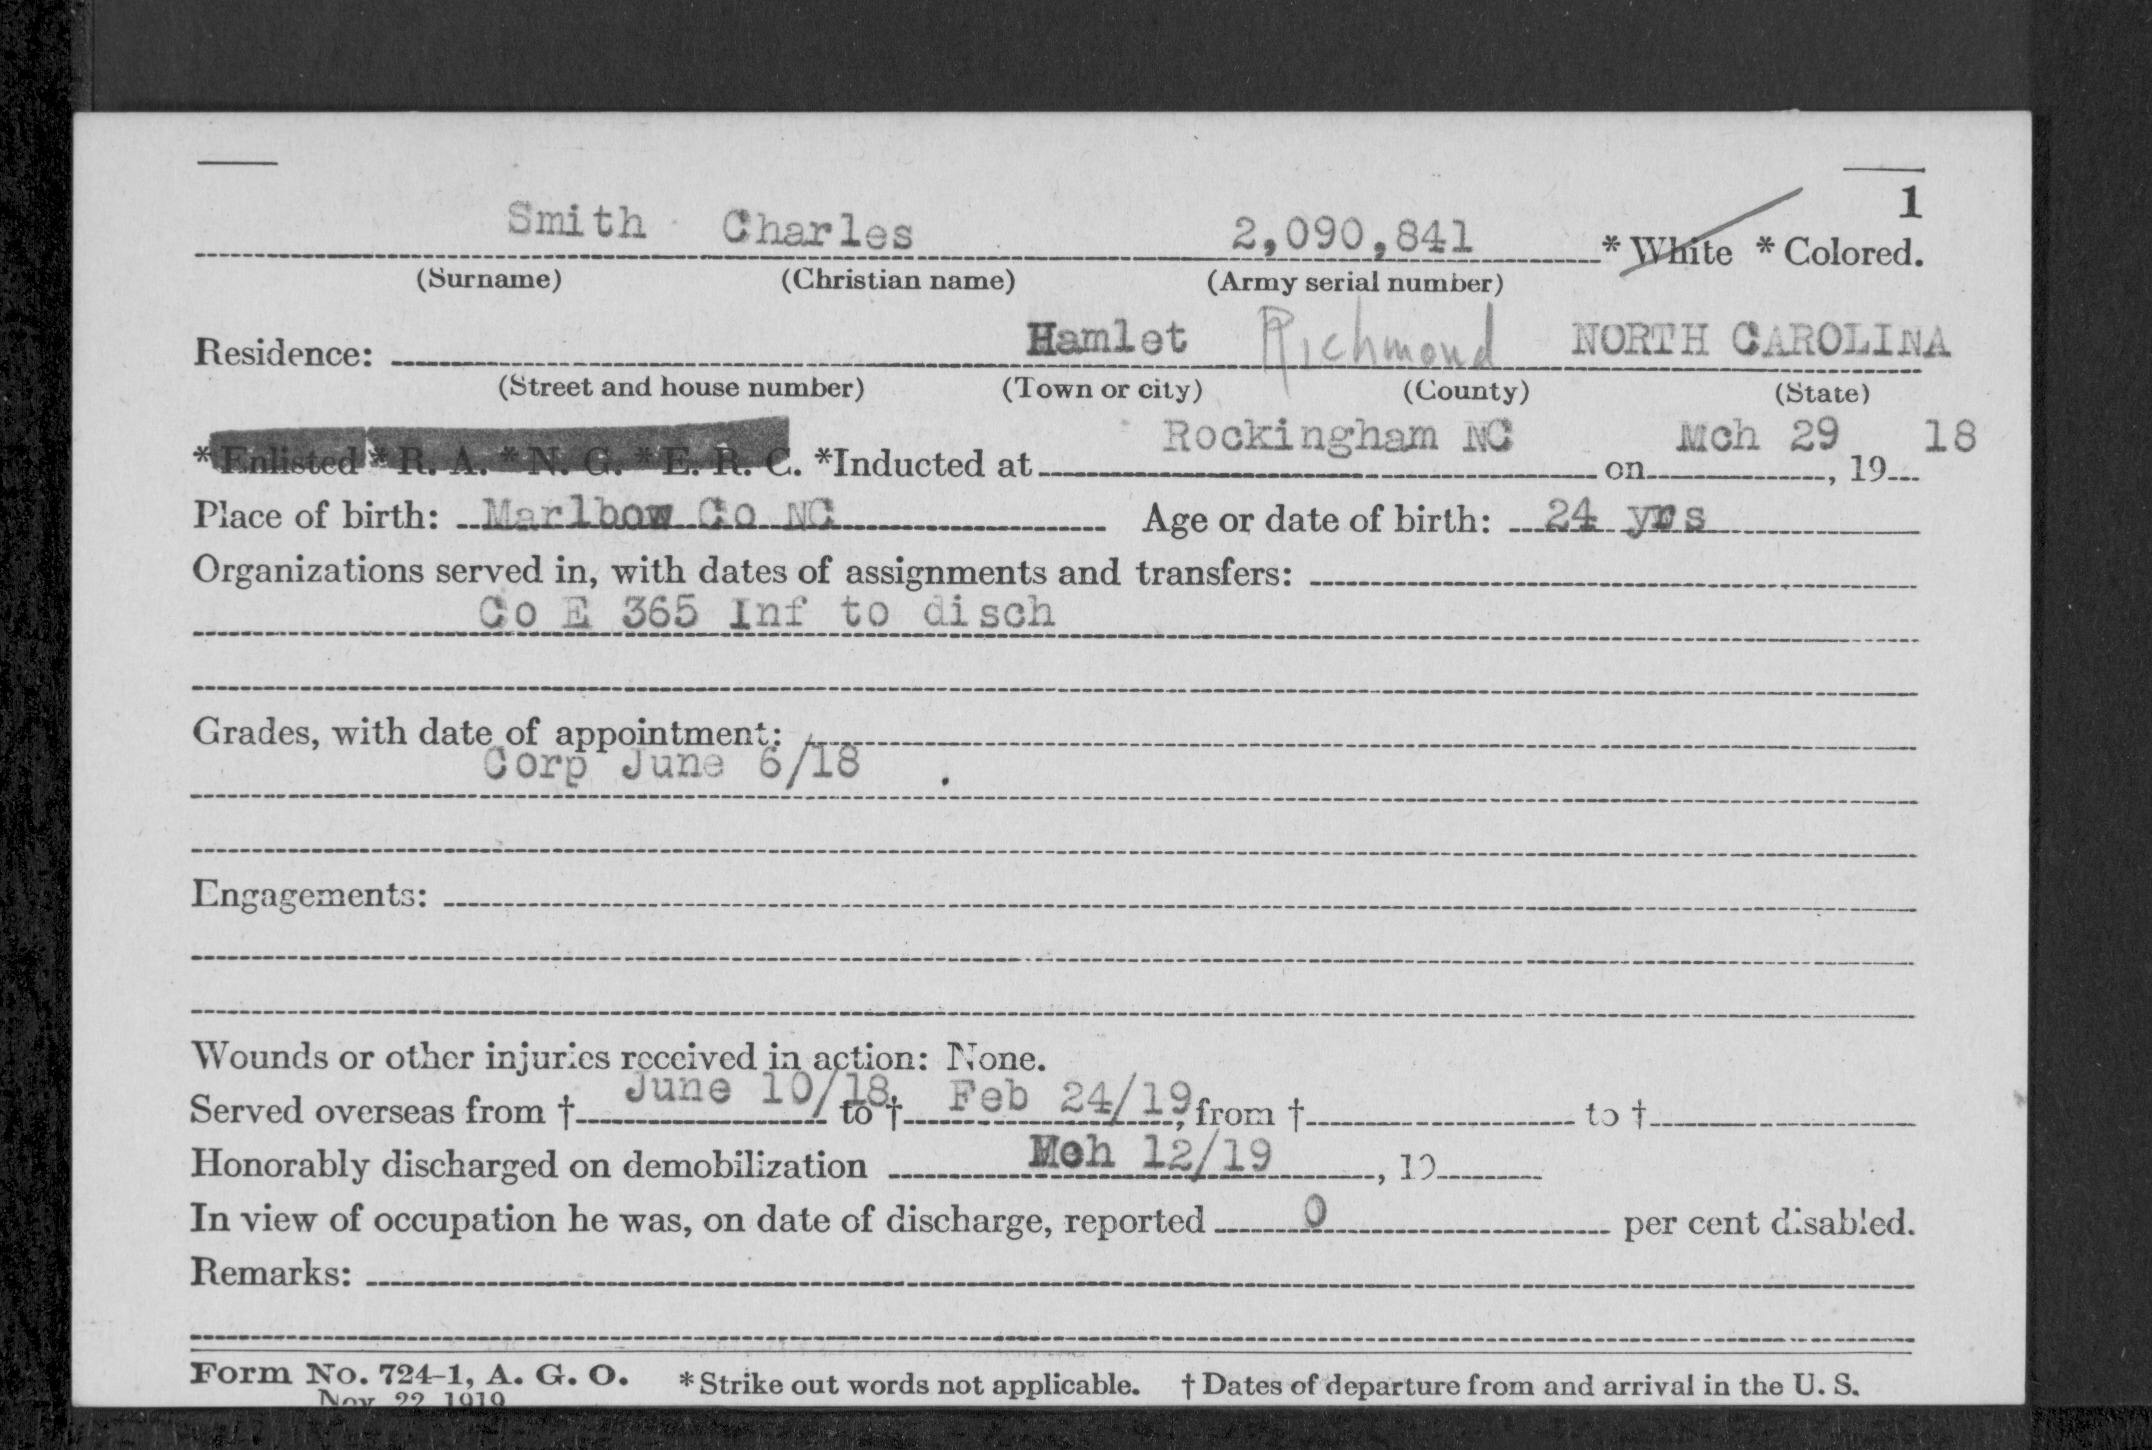 1
Smith Charles 2,090,841 * White * Colored.
(Surname) (Christian name) (Army serial number)
Residence: Hamlet Richmond NORTH CAROLINA
(Street and house number) (Town or city) (County) (State)
* Enlisted * R. A. * N. G. * E. R. C. *Inducted at Rockingham NC on Mch 29, 19 18
Place of birth: Marlbow Co NC Age or date of birth: 24 yrs
Organizations served in, with dates of assignments and transfers:
Co E 365 Inf to disch
Grades, with date of appointment:
Corp June 6/18
Engagements:
Wounds or other injuries received in action: None.
Served overseas from † June 10/18 to † Feb 24/19, from † to †
Honorably discharged on demobilization Mch 12/19, 19
In view of occupation he was, on date of discharge, reported 0 per cent disabled.
Remarks:
Form No. 724-1, A. G. O. * Strike out words not applicable. † Dates of departure from and arrival in the U. S.
Nov. 22 1919